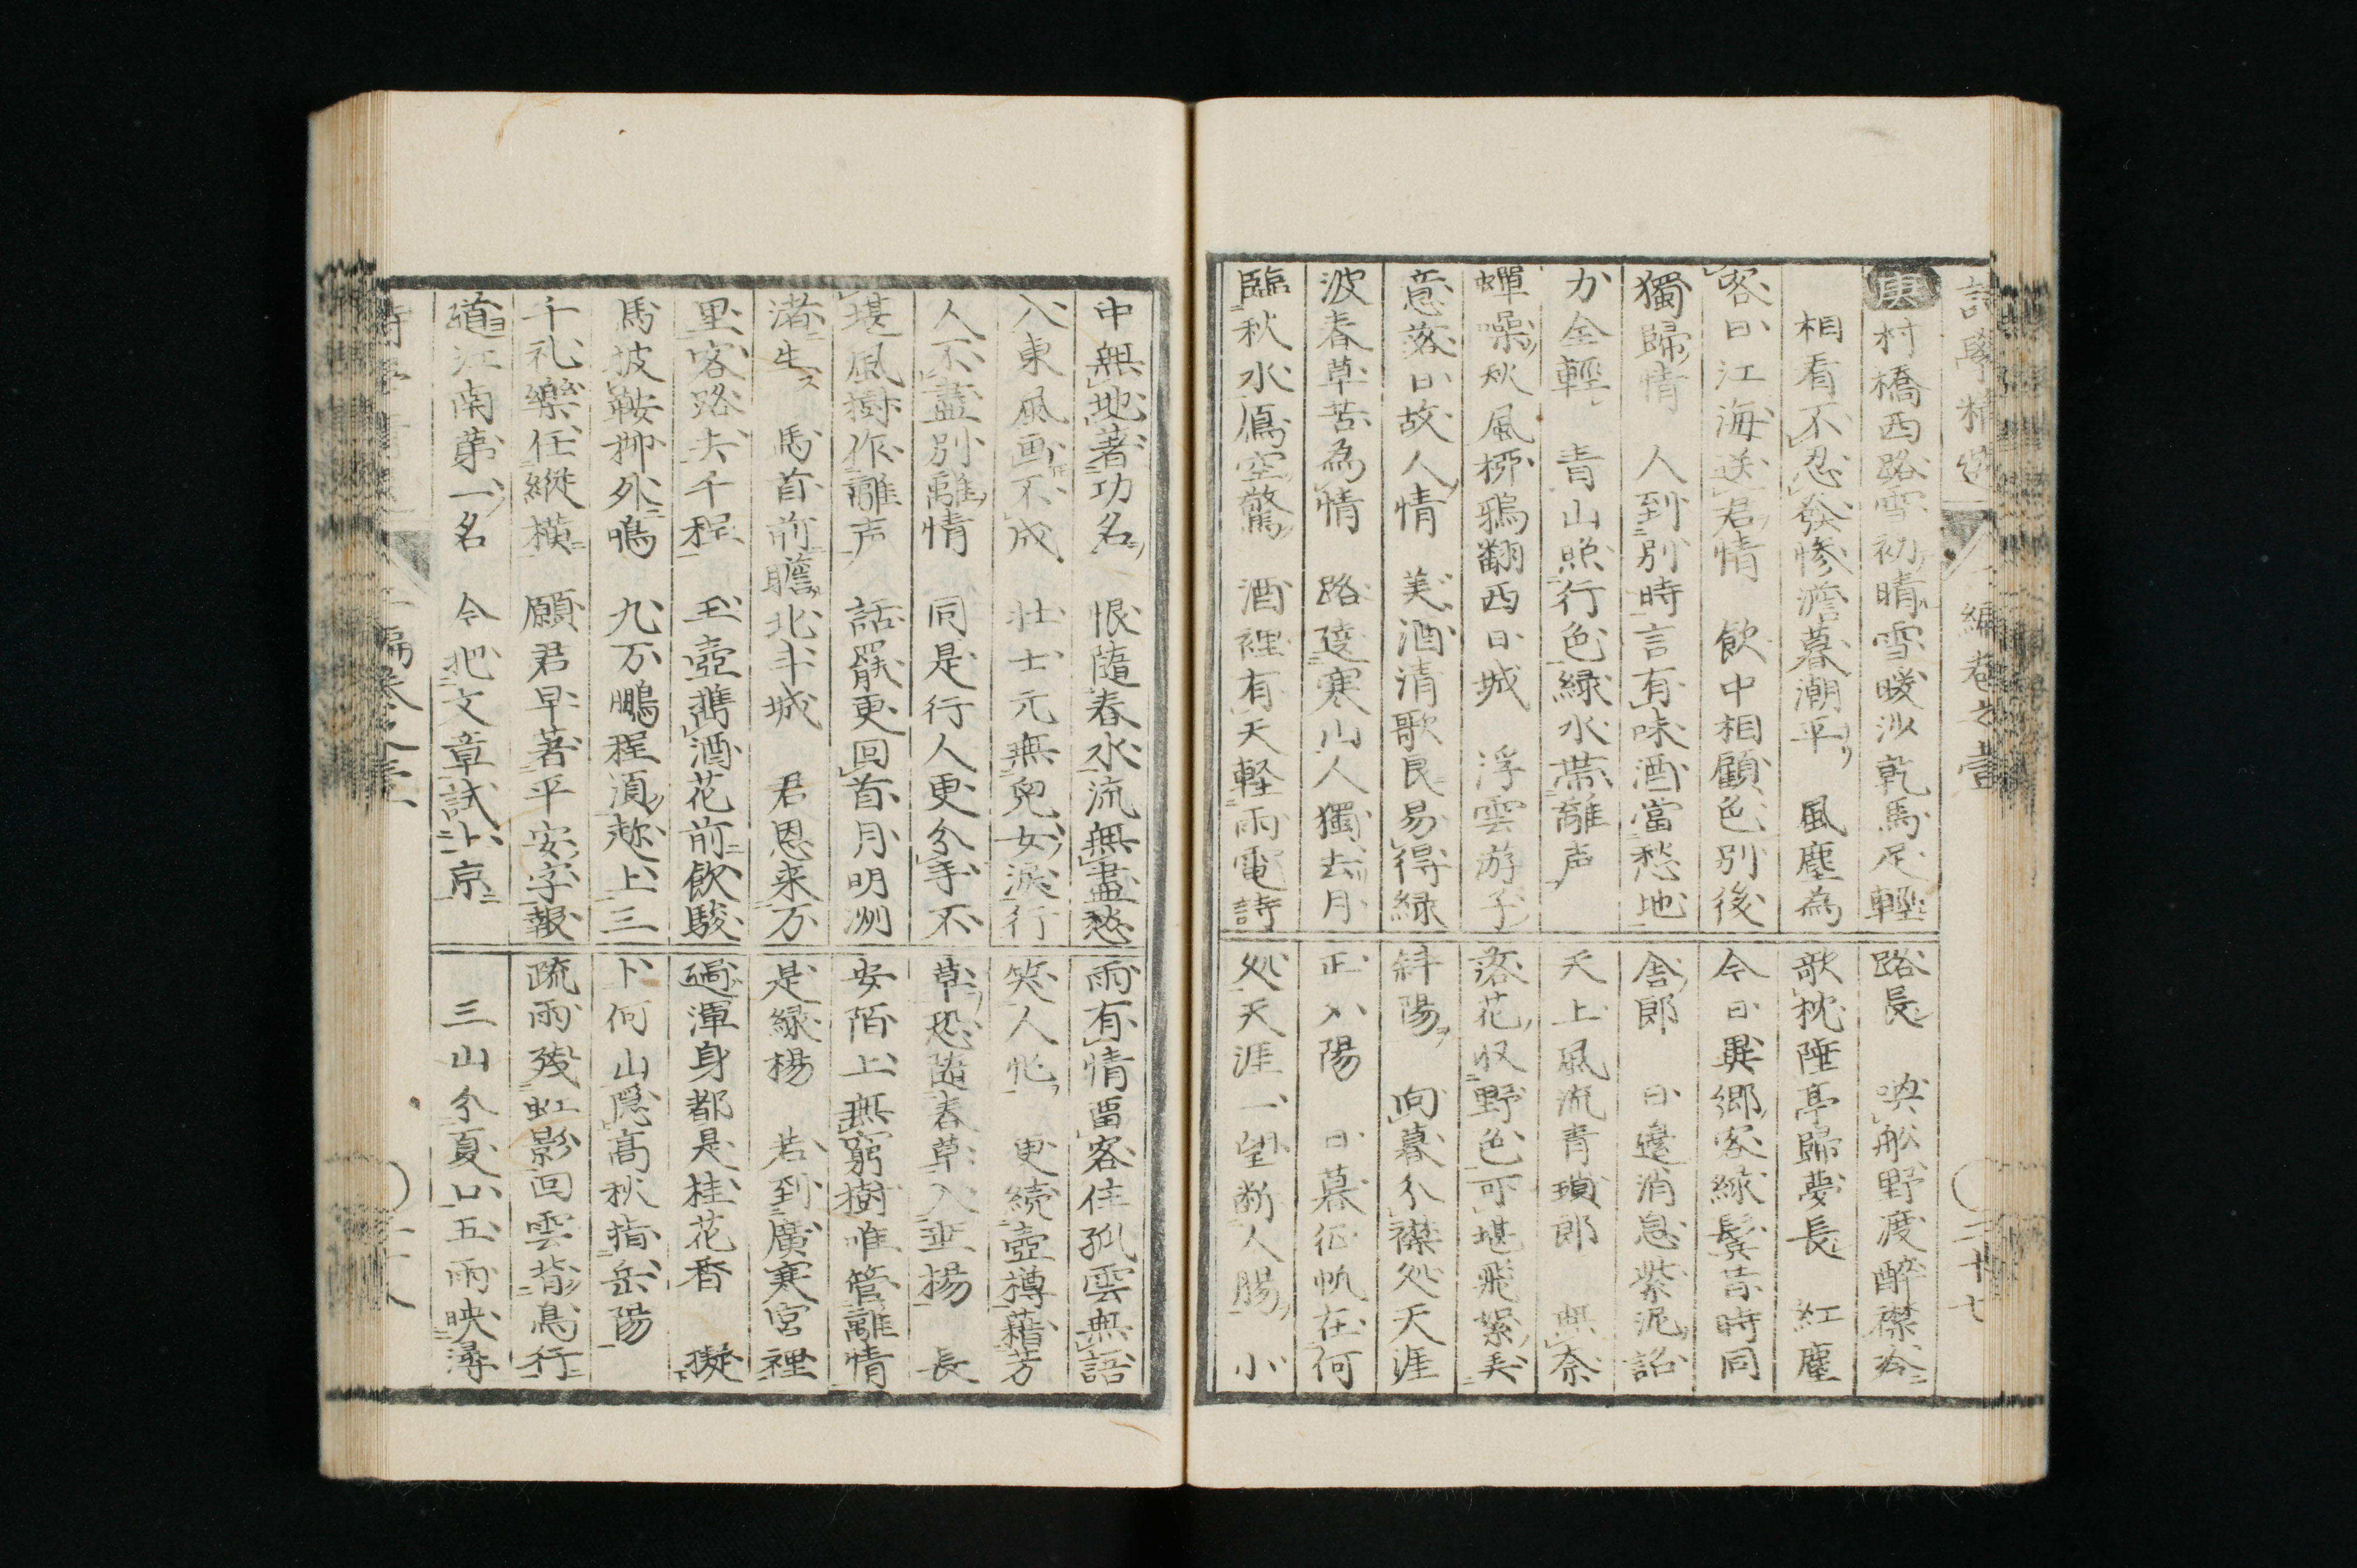 庚 村橋西路雪初晴雪暖沙乾馬足輕
相看不忍發惨澹暮潮平 風塵為
客日江海送君情 飲中相顧色別後
獨歸情 人到別時言有味酒當愁地
力全輕 青山照行色緑水帶離声
蟬噪秋風栁鴉翻西日城 浮雲游子
意落日故人情 美酒清歌良易得緑
波春草苦為情 路遶寒山人獨去月
臨秋水鴈空驚 酒裡有天軽雨電詩
路長 喚舩野渡醉襟冷
欹枕陲亭歸夢長 紅塵
今日異郷客緑鬓昔時同
舎郎 日邊消息紫泥詔
天上風流青瑣郎 無奈
落花収野色可堪飛絮美
斜陽 向暮分襟処天涯
正夕陽 日暮征帆在何
処天涯一望断人腸 小
二十七
中無地著功名 恨隨春水流無盡愁
入東風画不成 壮士元無兒女涙行
人不盡別離情 同是行人更分手不
堪風樹作離声 話罷更回首月明洲
渚生 馬首前瞻北斗城 君恩来万
里客路去千程 玉壺携酒花前飲駿
馬披鞍栁外鳴 九万鵬程須趂上三
千礼樂任縱横 願君早著平安字報
道江南第一名 今把文章試上京
雨有情留客住孤雲無語
笑人忙 更続壺樽藉芳
草恐隨春草入垂楊 長
安陌上無窮樹唯管離情
是緑楊 若到廣寒宮裡
過渾身都是桂花香 擬
卜何山隱高秋指岳陽
疏雨殘虹影回雲背鳥行
三山分夏口五雨映潯